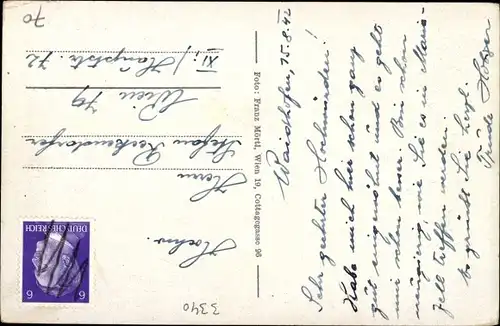 Waidhofen, 15.8.42
Sehr geehrter Hochwürden!
Habe mich hier schon ganz
gut eingewöhnt und es geht
mir schon besser. Bin schon
neugierig wie Sie es in Maria-
zell treffen werden.
Es grüßt Sie herzl.
Foto: Franz Mörtl, Wien 19, Cottagegasse 96
Hochw.
Herrn
Stefan Reckendorfer
Wien 79
XI., Hauptstr. 72
70
3340
DEUTSCHES REICH
6 6